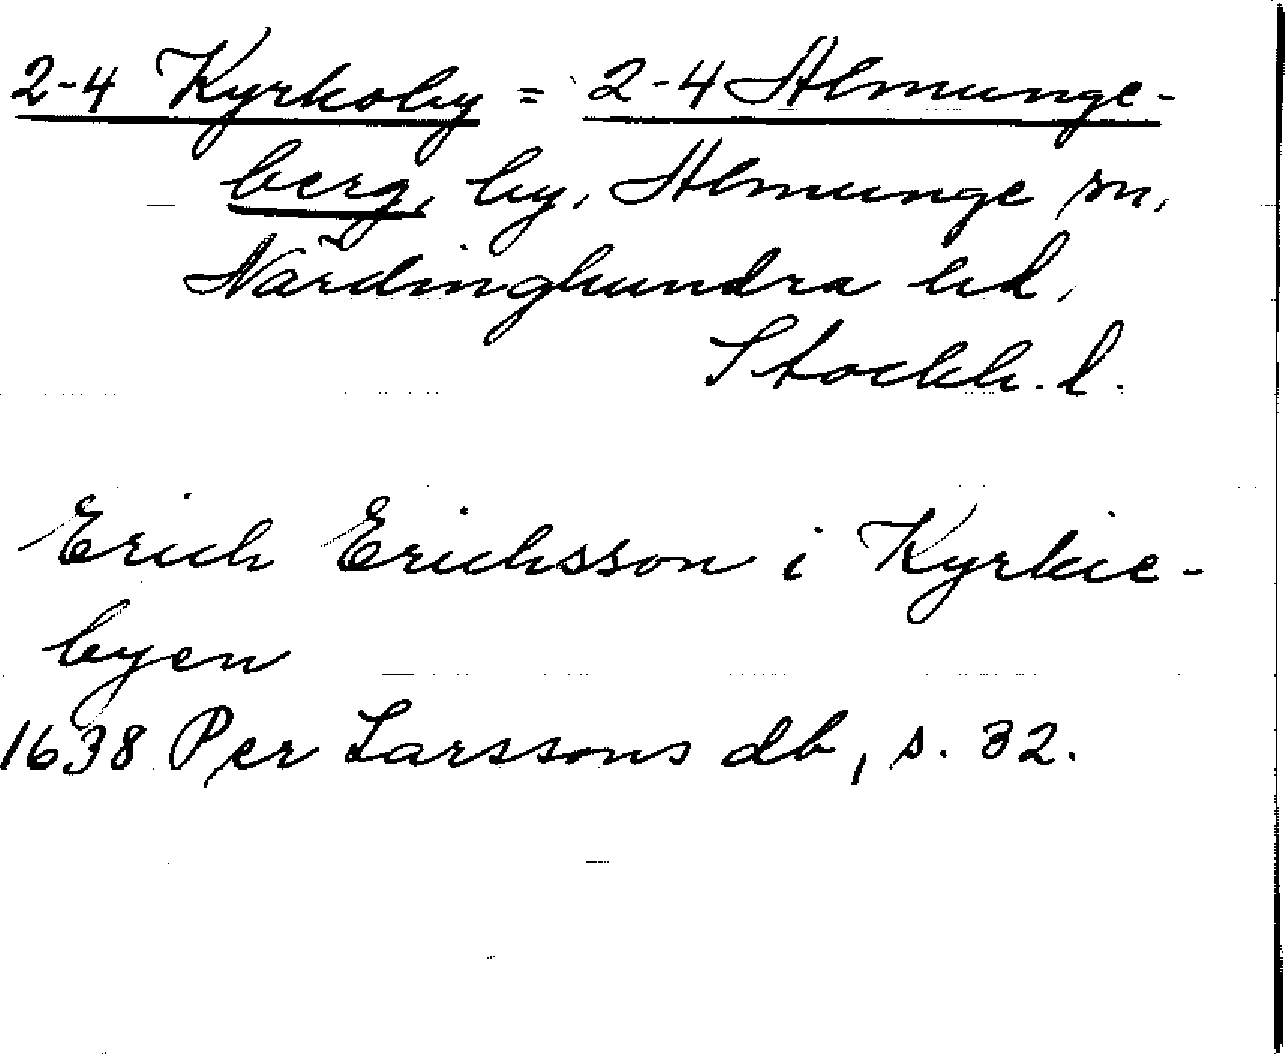 2-4 Kyrkoby = 2-4 Almunge-
berg, by, Almunge sn,
Närdinghundra hd,
Stockh. l.
Erich Erichsson i Kyrkie-
byen
1638 Per Larssons db, s. 32.